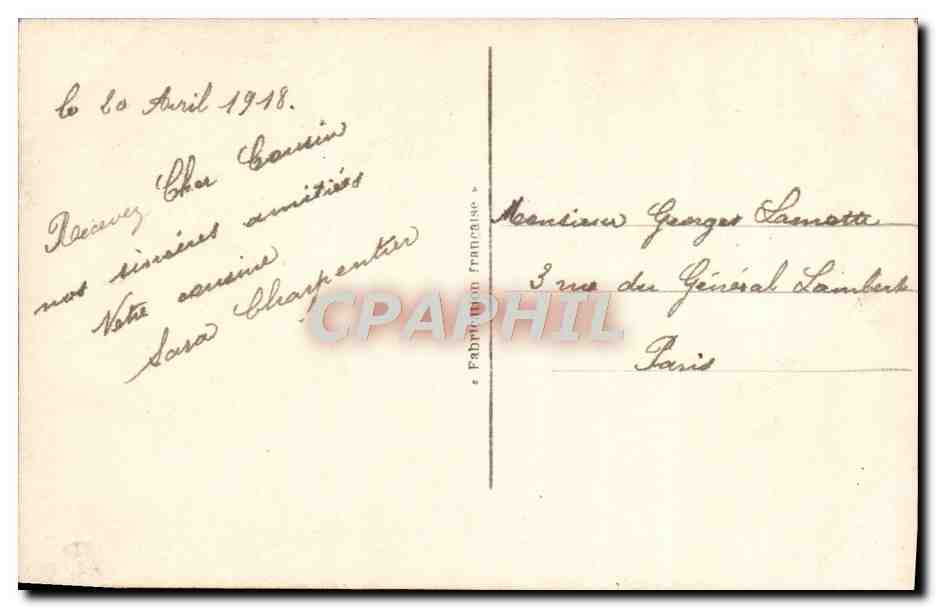 le 20 Avril 1918.
Recevez Cher Cousin
nos sincères amitiés
Votre cousine
Sara Charpentier
« Fabrication française »
Monsieur Georges Lamotte
3 rue du Général Lambert
Paris
CPAPHIL